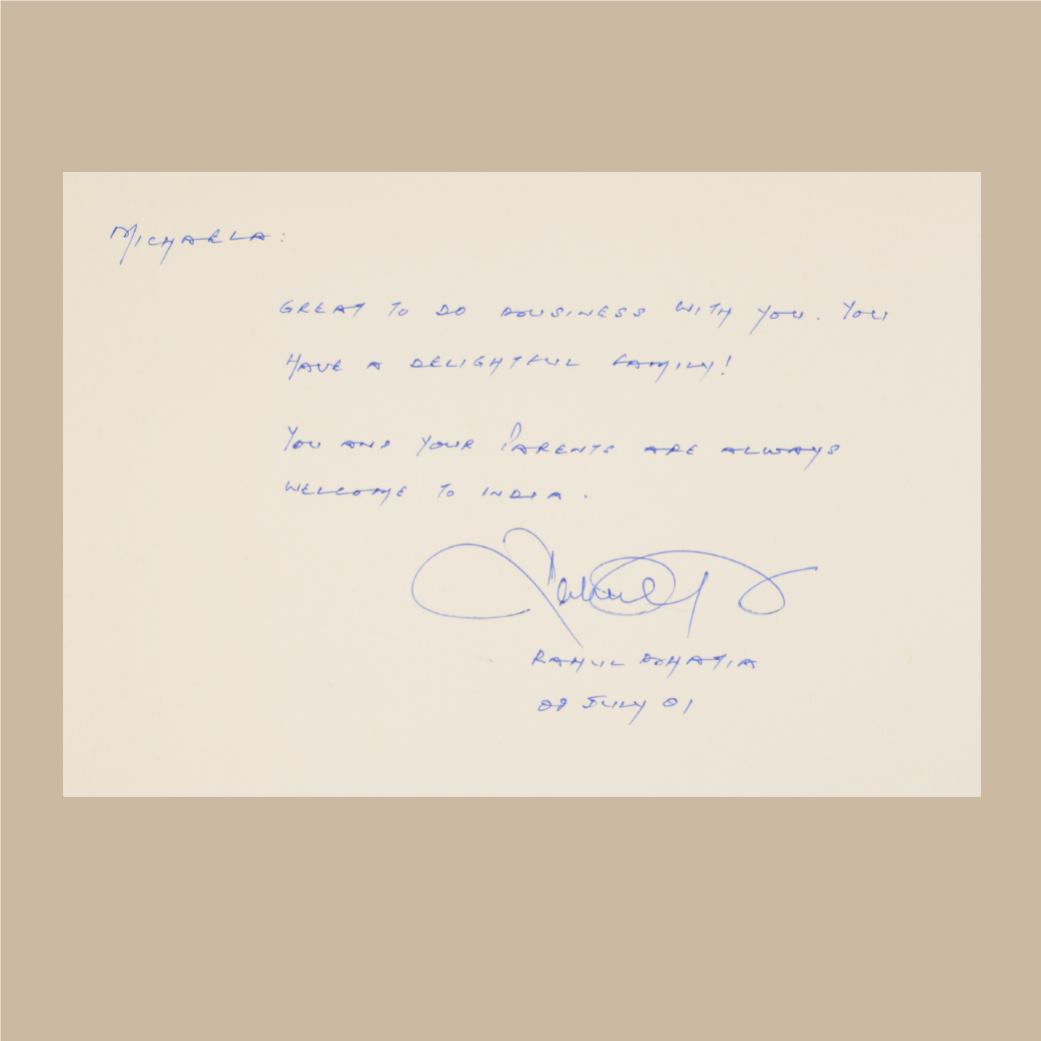 MICHAELA:
GREAT TO DO BUSINESS WITH YOU. YOU
HAVE A DELIGHTFUL FAMILY!
YOU AND YOUR PARENTS ARE ALWAYS
WELCOME TO INDIA.
Rahul
RAHUL BHATIA
08 JULY 01